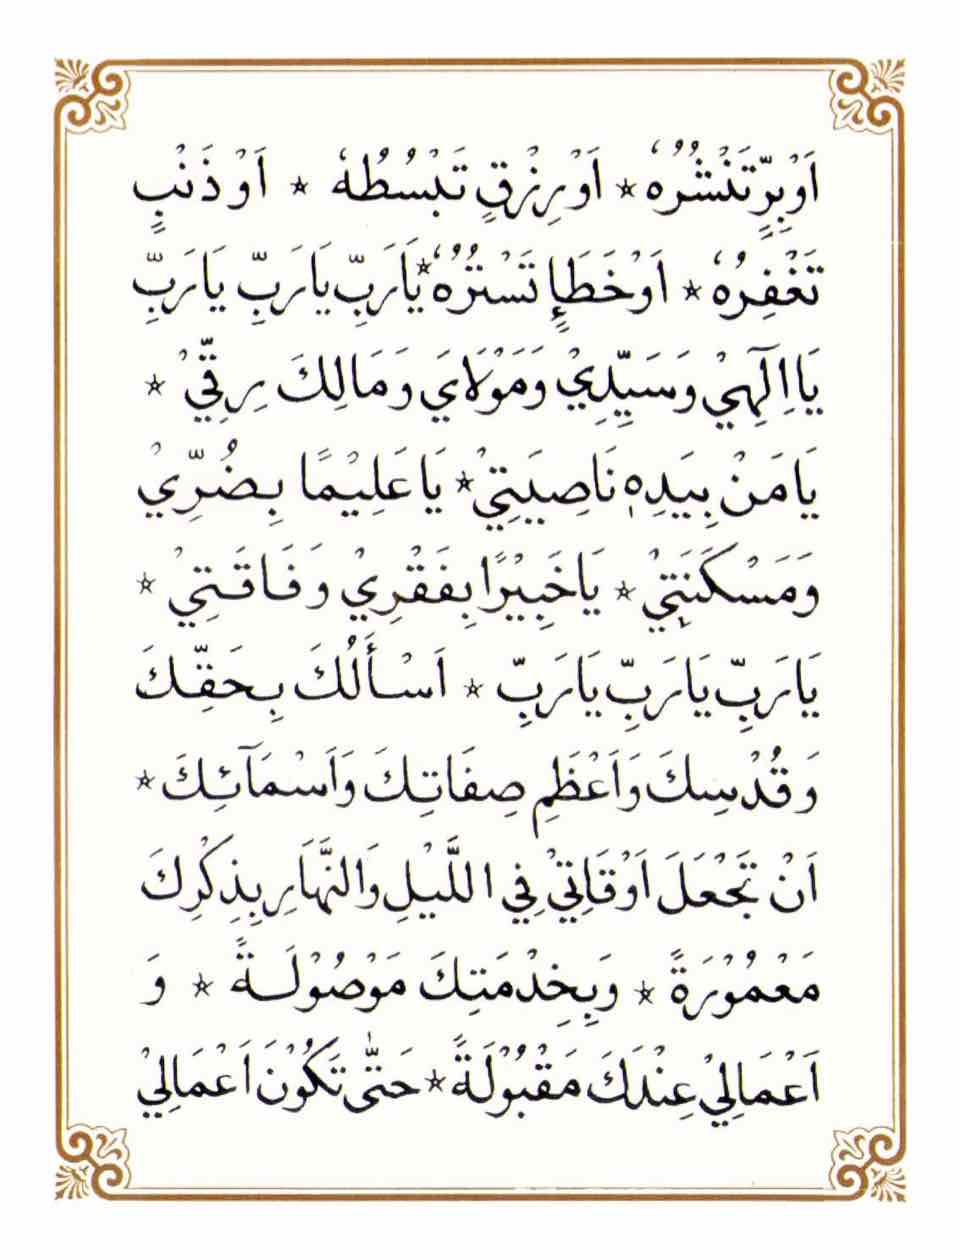 اَوْبِرٍّ تَنْشُرُهُ ٭ اَوْ رِزْقٍ تَبْسُطُهُ ٭ اَوْ ذَنْبٍ
تَغْفِرُهُ ٭ اَوْ خَطَإٍ تَسْتُرُهُ ٭ يَارَبِّ يَارَبِّ يَارَبِّ
يَا اِلٰهِيْ وَسَيِّدِيْ وَمَوْلَايَ وَمَالِكَ رِقِّيْ ٭
يَا مَنْ بِيَدِهٖ نَاصِيَتِيْ ٭ يَا عَلِيْمًا بِضُرِّيْ
وَمَسْكَنَتِيْ ٭ يَاخَبِيْرًا بِفَقْرِيْ وَفَاقَتِيْ ٭
يَارَبِّ يَارَبِّ يَارَبِّ ٭ اَسْأَلُكَ بِحَقِّكَ
وَقُدْسِكَ وَاَعْظَمِ صِفَاتِكَ وَاَسْمَآئِكَ ٭
اَنْ تَجْعَلَ اَوْقَاتِيْ فِي اللَّيْلِ وَالنَّهَارِ بِذِكْرِكَ
مَعْمُوْرَةً ٭ وَبِخِدْمَتِكَ مَوْصُوْلَةً ٭ وَ
اَعْمَالِيْ عِنْدَكَ مَقْبُوْلَةً ٭ حَتّٰى تَكُوْنَ اَعْمَالِيْ